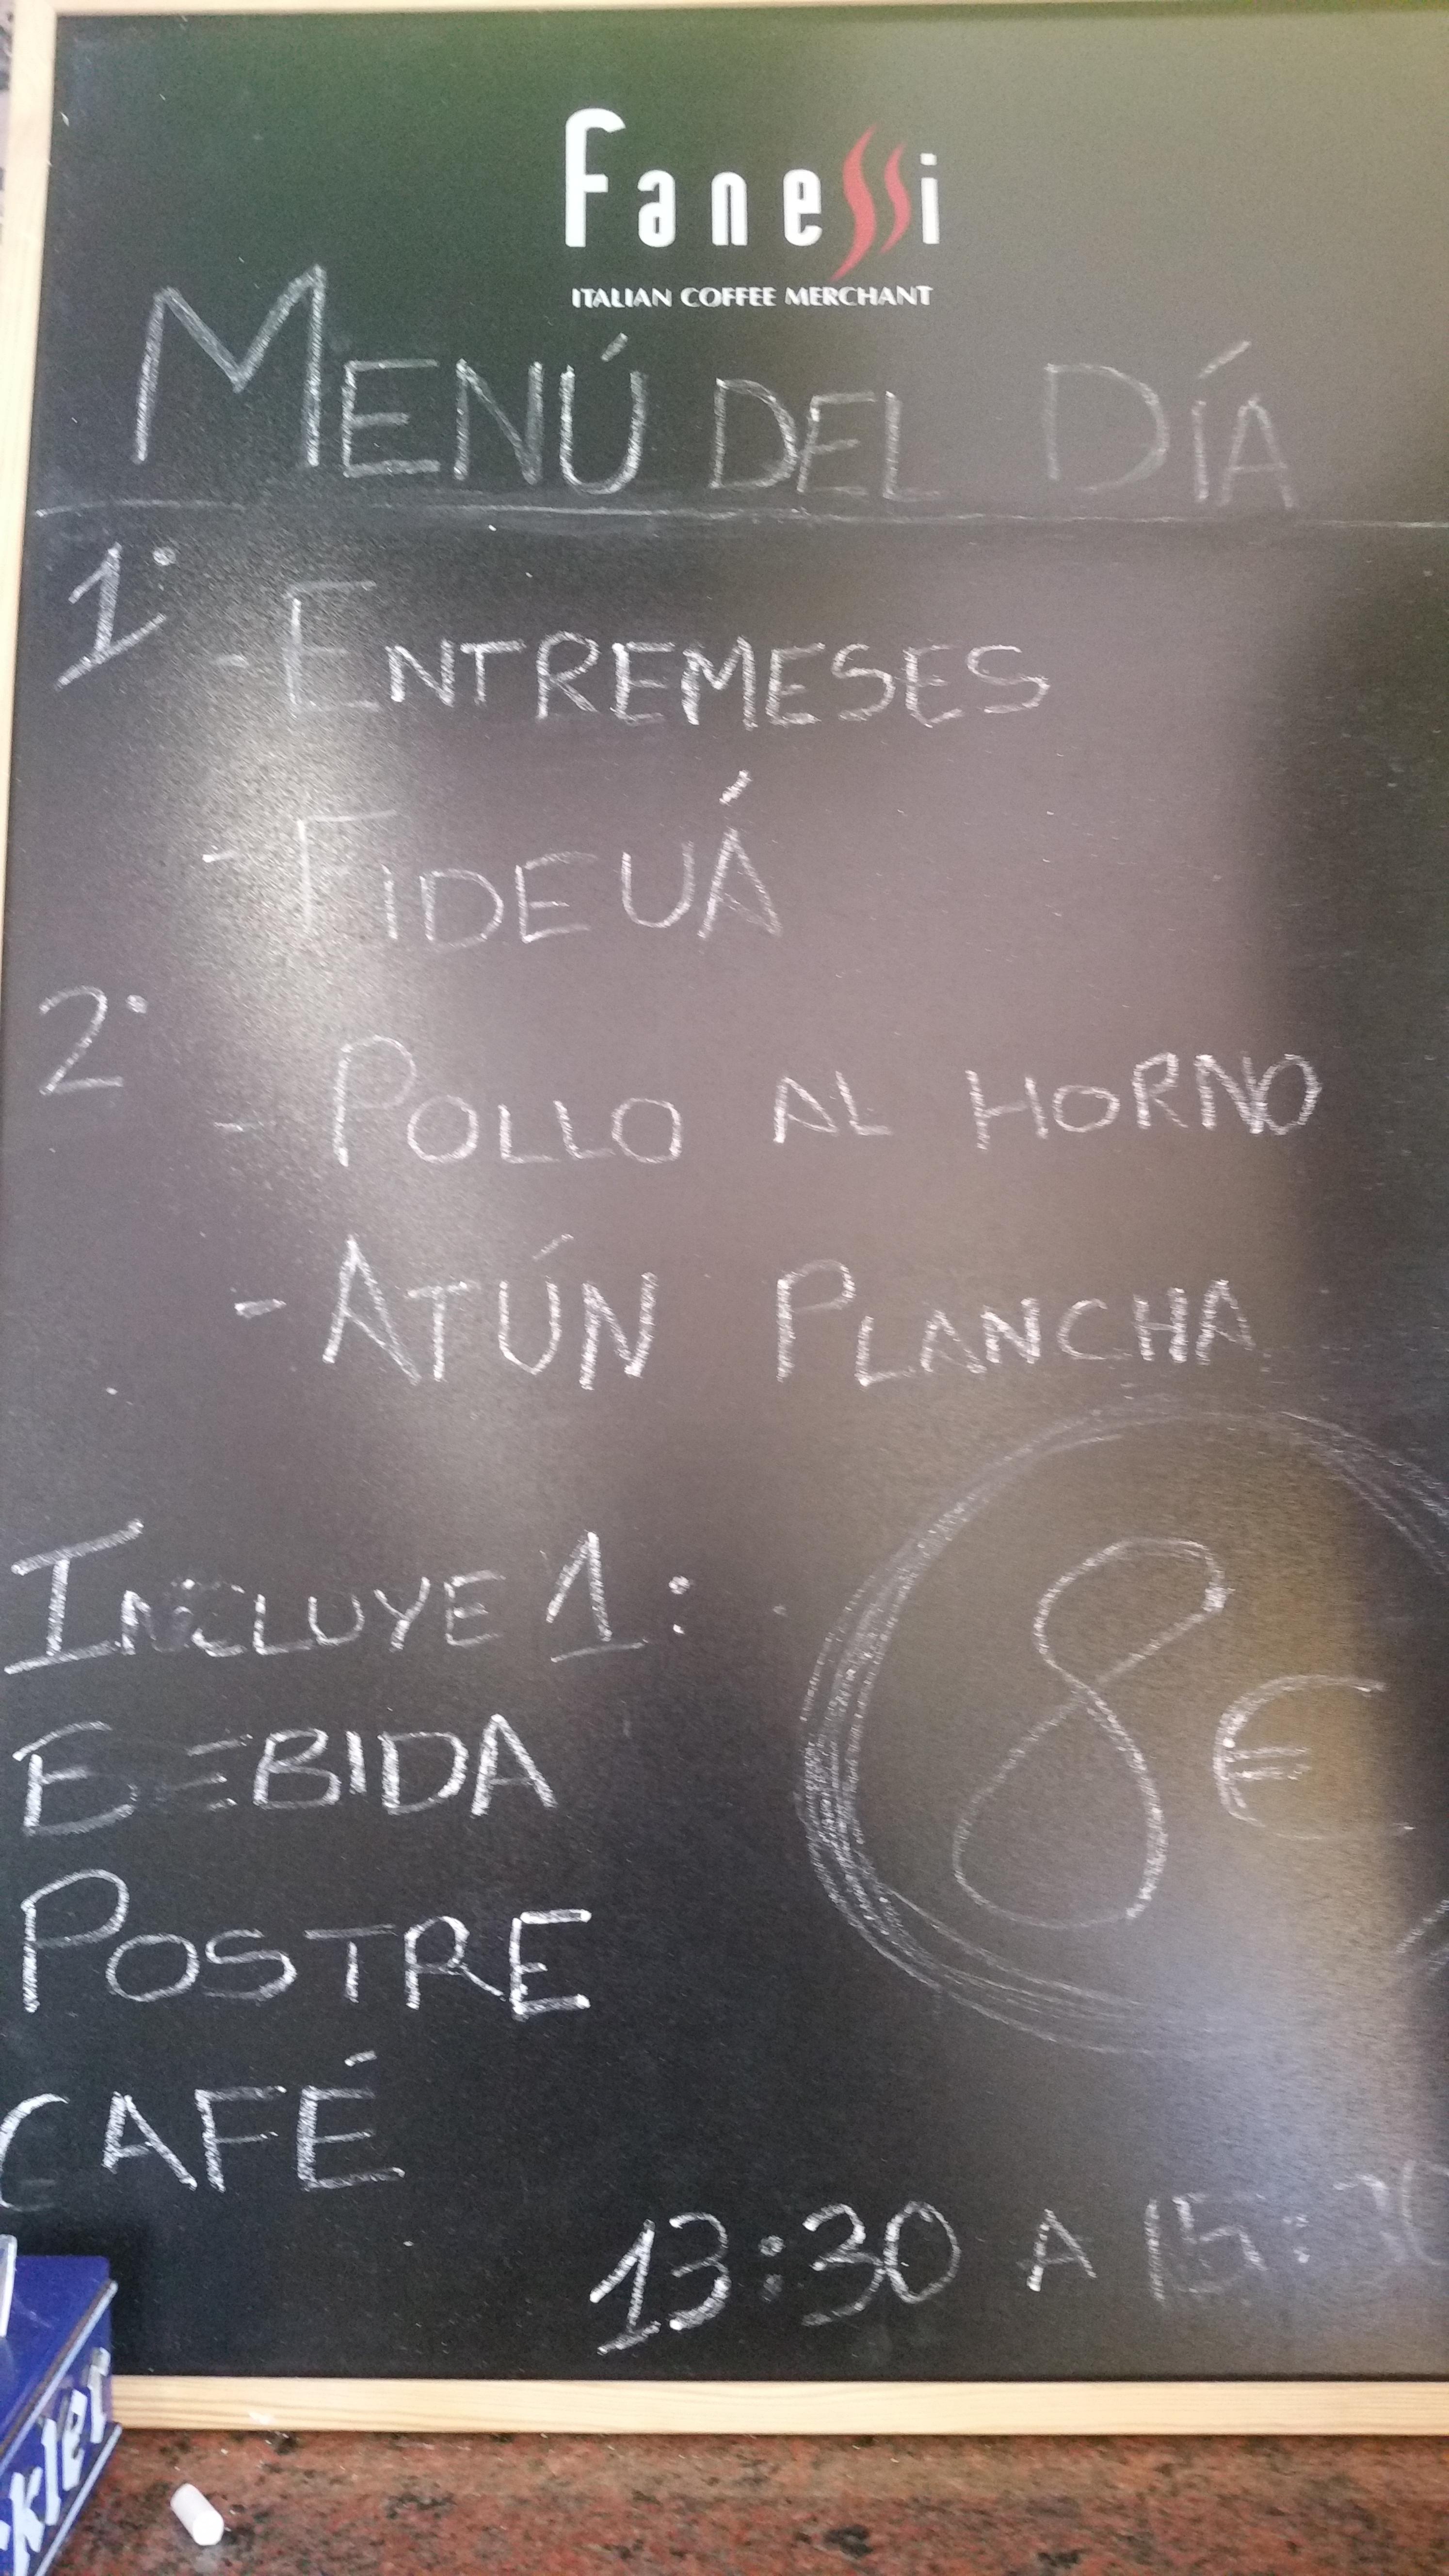 Fanessi
ITALIAN COFFEE MERCHANT
MENÚ DEL DÍA
1º
- ENTREMESES
- FIDEUÁ
2º
- POLLO AL HORNO
- ATÚN PLANCHA
INCLUYE 1:
BEBIDA
POSTRE
CAFÉ
8€
13:30 A 15:30